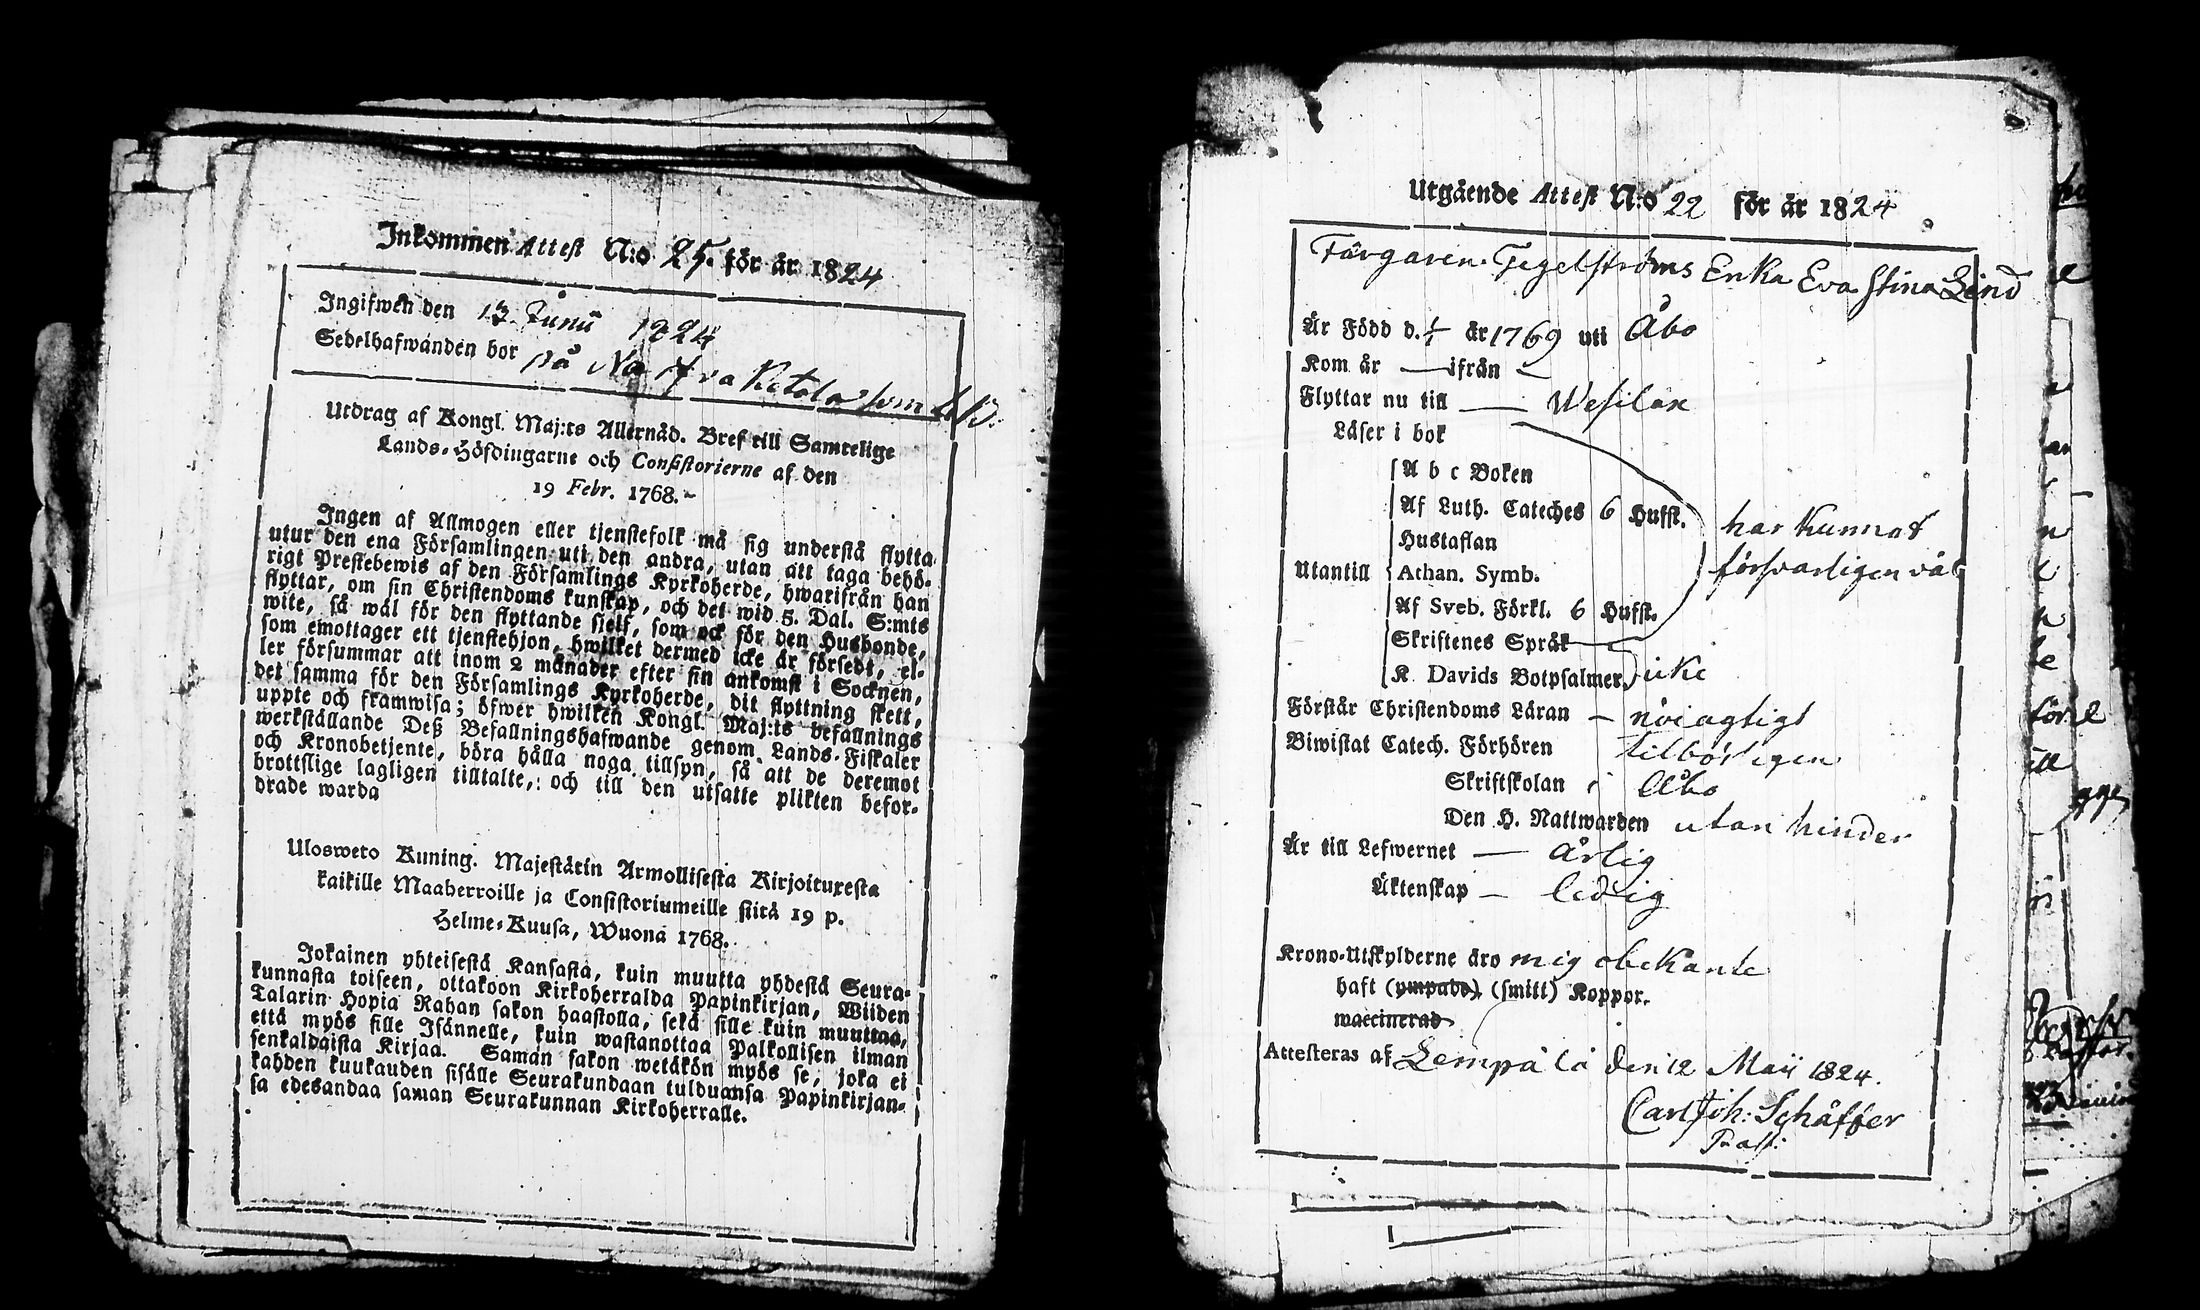 Inkommen Attest N:o 25. för år 1824
Ingifwen den 13. Junii 1824
Sedelhafwanden bor på Ketola
Utdrag af Kongl. Maj:ts Allernåd. Bref till Samtelige
Lands-Höfdingarne och Consistorierne af den
19 Febr. 1768.
Ingen af Allmogen eller tjenstefolk må sig understå flytta
utur den ena Församlingen uti den andra, utan att taga behö-
rigt Prestebewis af den Församlings Kyrkoherde, hwarifrån han
flyttar, om sin Christendoms kunskap, och det wid 5. Dal. S:mts
wite, så wäl för den flyttande sielf, som ock för den Husbonde,
som emottager ett tjenstehjon, hwilket dermed icke är försedt, el-
ler försummar att inom 2 månader efter sin ankomst i Socknen,
det samma för den Församlings Kyrkoherde, dit flyttning skett,
uppte och framwisa; öfwer hwilken Kongl. Maj:ts befallnings
werkställande Deß Befallningshafwande genom Lands-Fiskaler
och Kronobetjente, böra hålla noga tillsyn, så att de deremot
brottslige lagligen tilltalte, och till den utsatte plikten befor-
drade warda
Ulosweto Kuning. Majestätin Armollisesta Kirjoituxesta
kaikille Maaherroille ja Consistoriumeille siitä 19 p.
Helme-Kuusa, Wuonä 1768.
Jokainen yhteisestä Kansasta, kuin muutta yhdestä Seura-
kunnasta toiseen, ottakoon Kirkoherralda Papinkirjan, Wiiden
Talarin Hopia Rahan sakon haastolla, sekä sille kuin muuttaa,
että myös sille Isännelle, kuin wastanottaa Palkollisen ilman
senkaldaista Kirjaa. Saman sakon wetäkön myös se, joka ei
kahden kuukauden sisälle Seurakundaan tulduansa Papinkirjan-
sa edesandaa saman Seurakunnan Kirkoherralle.
Utgående Attest N:o 22 för år 1824
Färgaren Tegelströms Enka Eva Stina Lind
Är Född d. 1/1 år 1769 uti Åbo
Kom år — ifrån —
Flyttar nu till — Wesilax
Läser i bok
A b c Boken
Af Luth. Cateches 6 Hufst.
har kunnat
Hustaflan
försvarligen väl
Utantill Athan. Symb.
Af Sveb. Förkl. 6 Hufst.
Skriftenes Språk
K. Davids Botpsalmer. icke
Förstår Christendoms Läran — nöiagtigt
Biwistat Catech. Förhören tilbörligen
Skriftskolan i Åbo
Den H. Nattwarden utan hinder
Är till Lefwernet — ärlig
Äktenskap — ledig
Krono-Utskylderne äro mig obekante
haft (ympade) (smitt) Koppor.
waccinerad
Attesteras af Lempälä den 12 Maii 1824.
Carl Joh: Schäffer
Past: